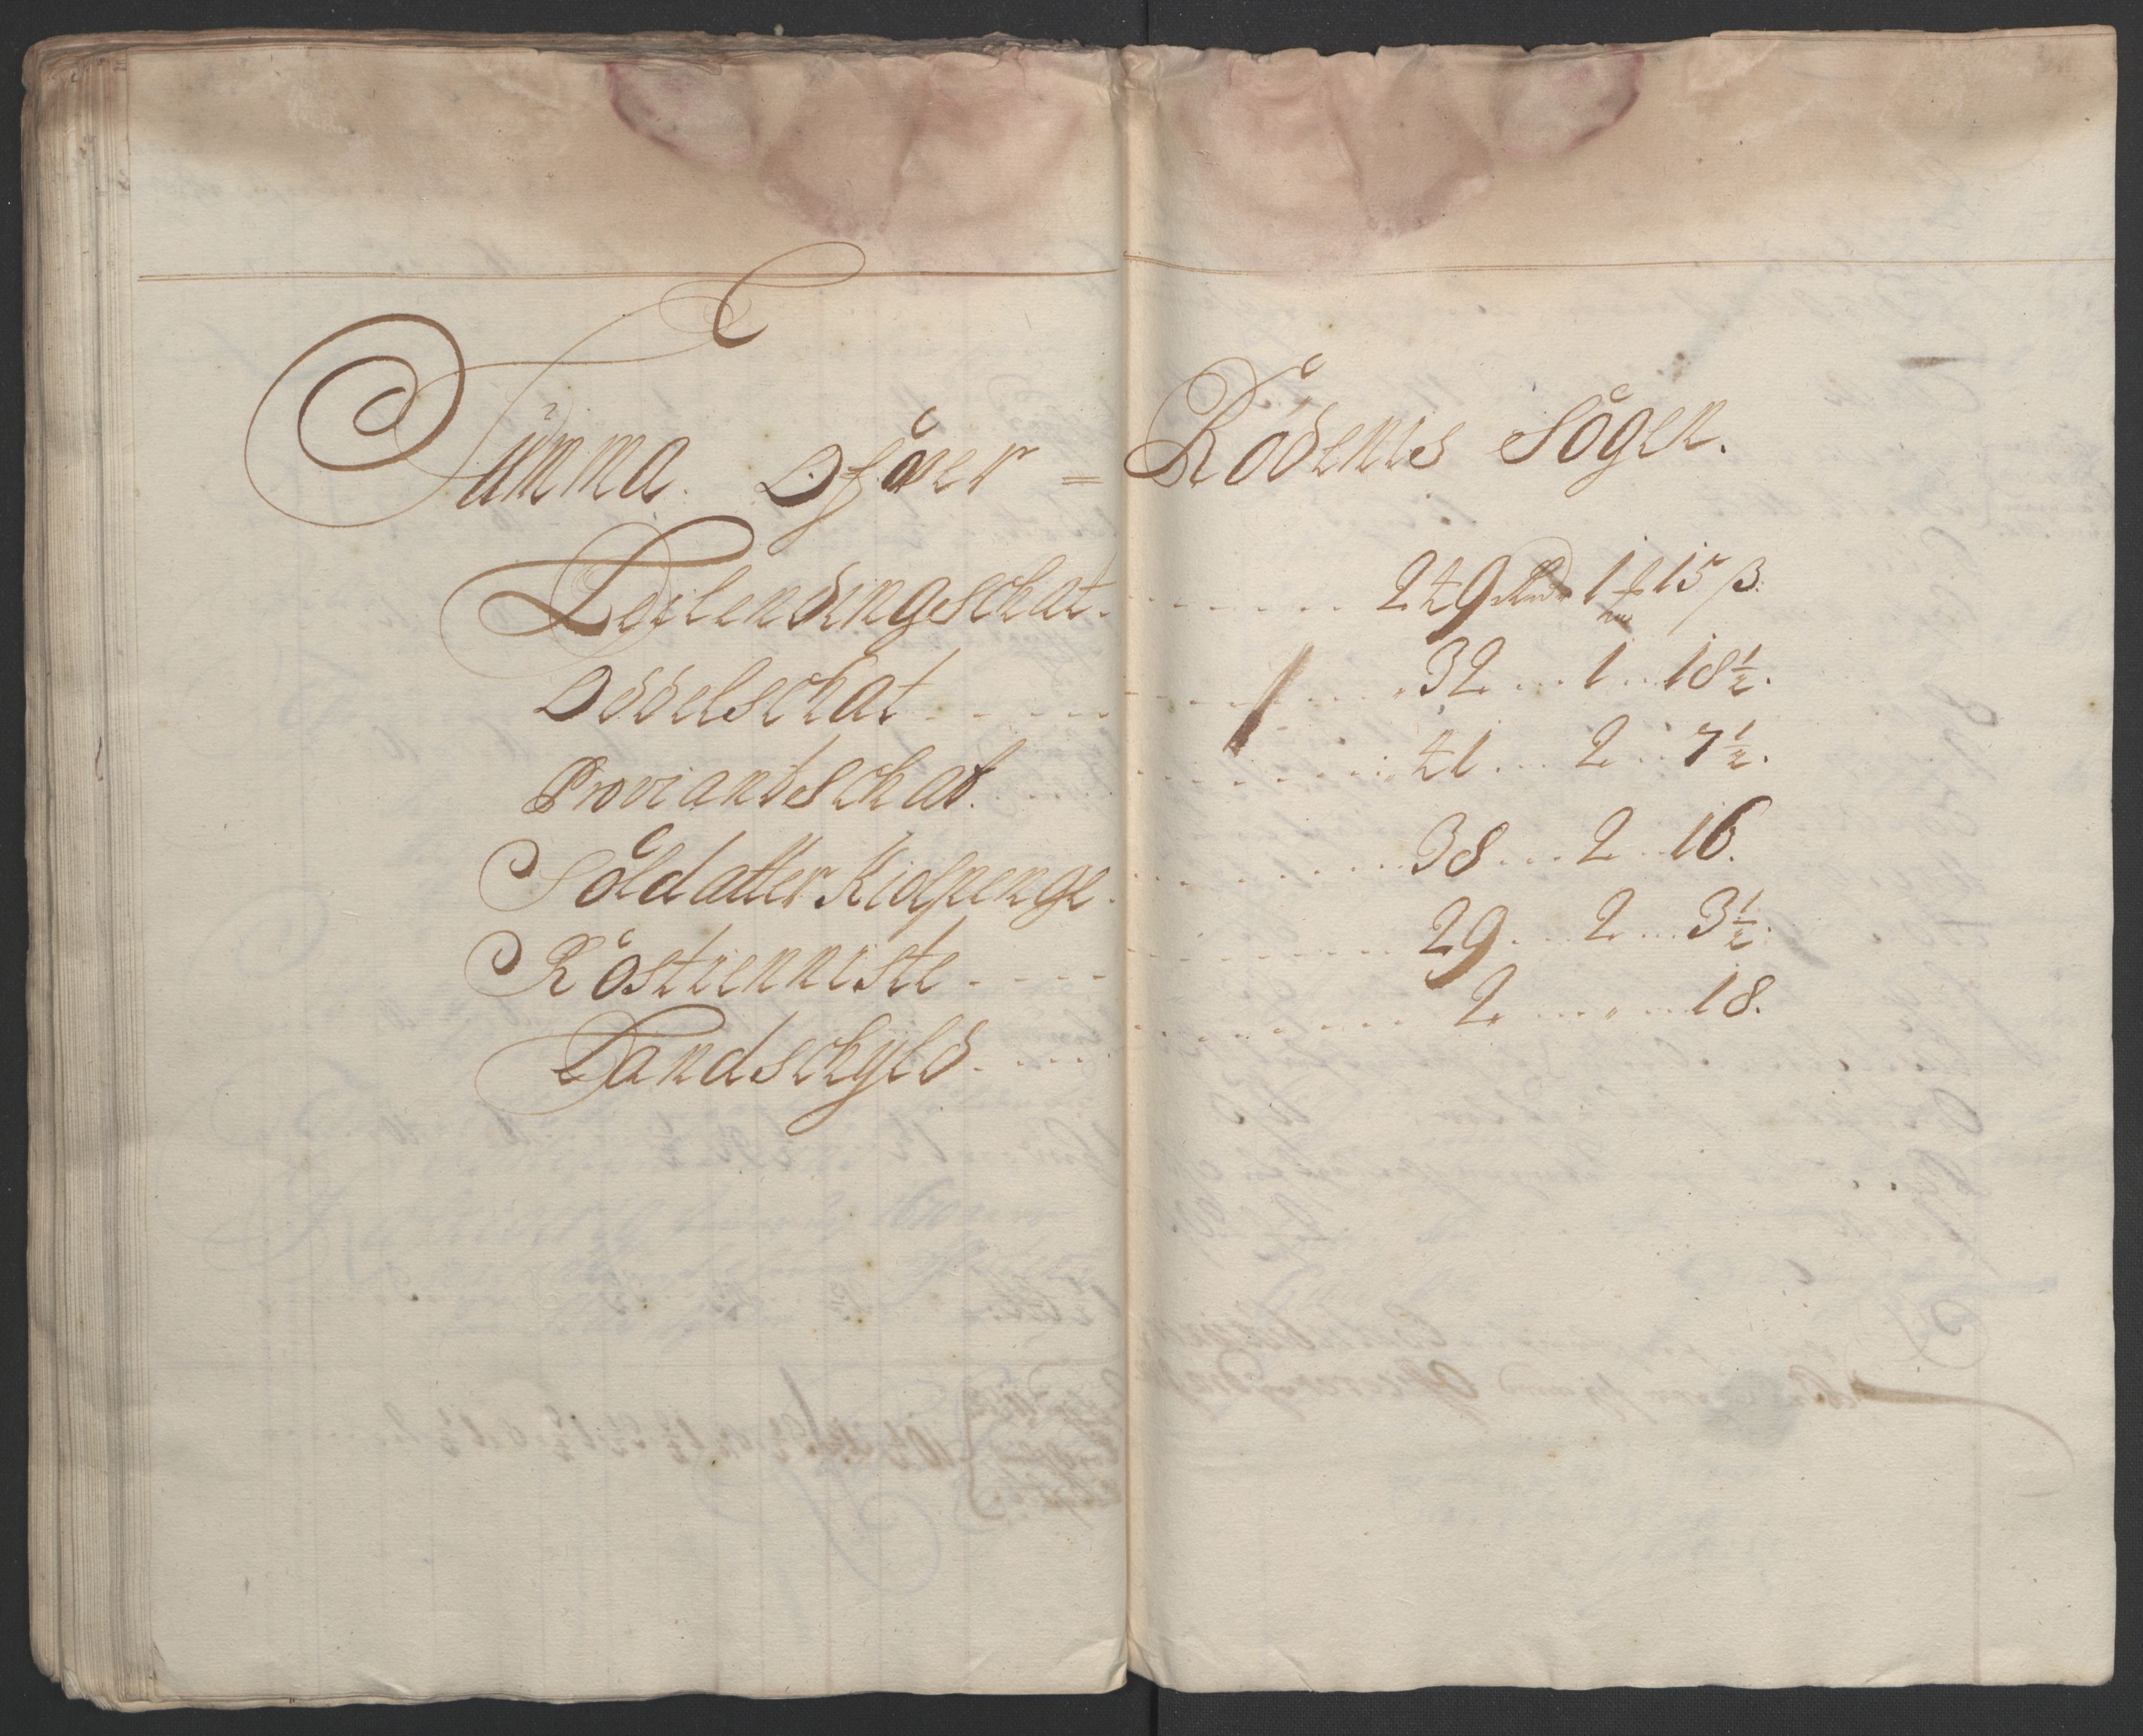 Summa Ofver = Rödenis Sögen.
Leilendingschat. 249 Rdr 1 ƒ 15 β:
Oddelschat 32 1 18½.
Proviandschat. 41 2 7½.
Soldatter Kiolpenge. 38 2 16.
Röstienniste 29 2 3½.
Landschyld 2 " 18.